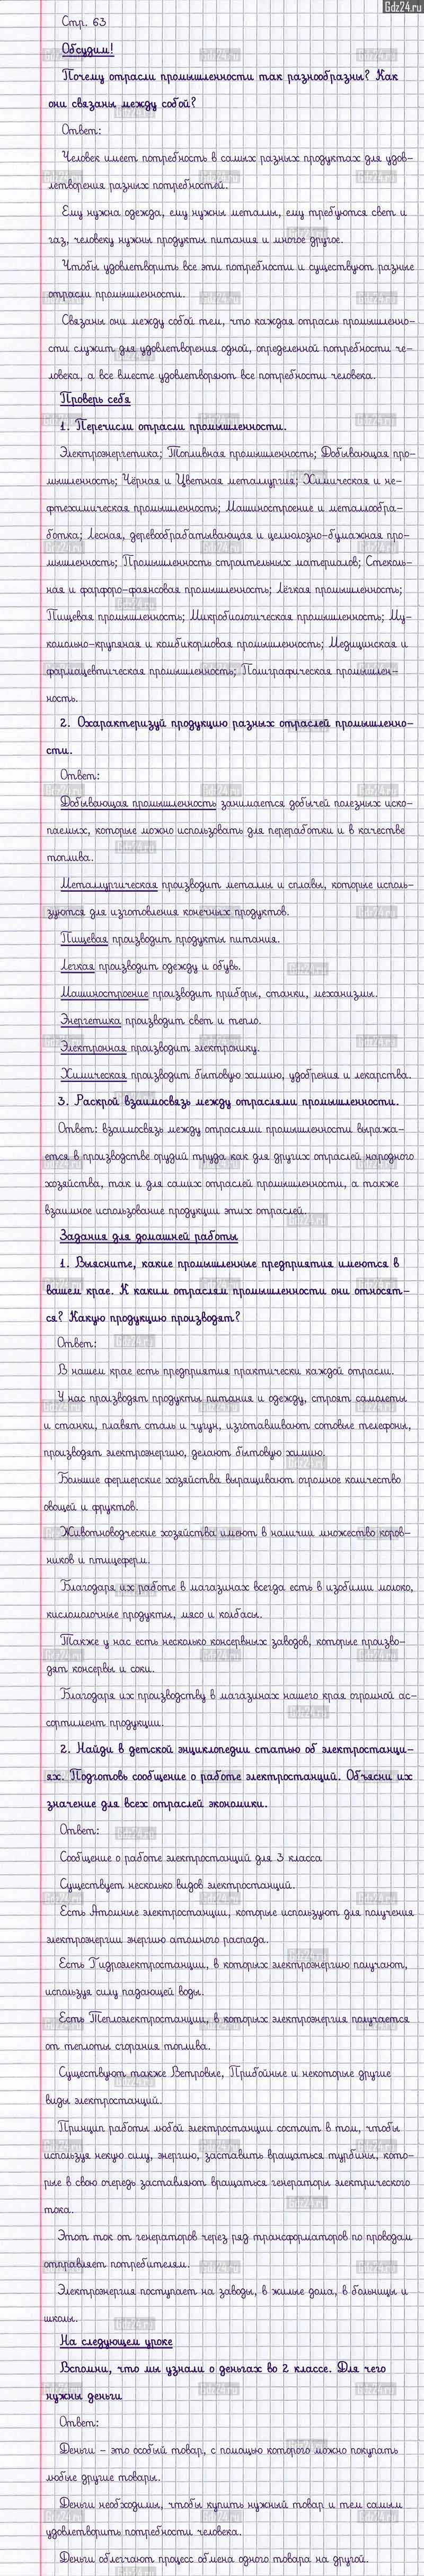 Gdz24.ru
Стр. 63
Обсудим!
Почему отрасли промышленности так разнообразны? Как
они связаны между собой?
Ответ:
Человек имеет потребность в самых разных продуктах для удов-
летворения разных потребностей.
Ему нужна одежда, ему нужны металлы, ему требуются свет и
газ, человеку нужны продукты питания и многое другое.
Чтобы удовлетворить все эти потребности и существуют разные
отрасли промышленности.
Связаны они между собой тем, что каждая отрасль промышленно-
сти служит для удовлетворения одной, определенной потребности че-
ловека, а все вместе удовлетворяют все потребности человека.
Проверь себя
1. Перечисли отрасли промышленности.
Электроэнергетика; Топливная промышленность; Добывающая про-
мышленность; Чёрная и Цветная металлургия; Химическая и не-
фтехимическая промышленность; Машиностроение и металлообра-
ботка; Лесная, деревообрабатывающая и целлюлозно-бумажная про-
мышленность; Промышленность строительных материалов; Стеколь-
ная и фарфоро-фаянсовая промышленность; Лёгкая промышленность;
Пищевая промышленность; Микробиологическая промышленность; Му-
комольно-крупяная и комбикормовая промышленность; Медицинская и
фармацевтическая промышленность; Полиграфическая промышлен-
ность.
2. Охарактеризуй продукцию разных отраслей промышленно-
сти.
Ответ:
Добывающая промышленность занимается добычей полезных иско-
паемых, которые можно использовать для переработки и в качестве
топлива.
Металлургическая производит металлы и сплавы, которые исполь-
зуются для изготовления конечных продуктов.
Пищевая производит продукты питания.
Легкая производит одежду и обувь.
Машиностроение производит приборы, станки, механизмы.
Энергетика производит свет и тепло.
Электронная производит электронику.
Химическая производит бытовую химию, удобрения и лекарства.
3. Раскрой взаимосвязь между отраслями промышленности.
Ответ: взаимосвязь между отраслями промышленности выража-
ется в производстве орудий труда как для других отраслей народного
хозяйства, так и для самих отраслей промышленности, а также
взаимное использование продукции этих отраслей.
Задания для домашней работы
1. Выясните, какие промышленные предприятия имеются в
вашем крае. К каким отраслям промышленности они относят-
ся? Какую продукцию производят?
Ответ:
В нашем крае есть предприятия практически каждой отрасли.
У нас производят продукты питания и одежду, строят самолеты
и станки, плавят сталь и чугун, изготавливают сотовые телефоны,
производят электроэнергию, делают бытовую химию.
Большие фермерские хозяйства выращивают огромное количество
овощей и фруктов.
Животноводческие хозяйства имеют в наличии множество коров-
ников и птицеферм.
Благодаря их работе в магазинах всегда есть в изобилии молоко,
кисломолочные продукты, мясо и колбасы.
Также у нас есть несколько консервных заводов, которые произво-
дят консервы и соки.
Благодаря их производству в магазинах нашего края огромной ас-
сортимент продукции.
2. Найди в детской энциклопедии статью об электростанци-
ях. Подготовь сообщение о работе электростанций. Объясни их
значение для всех отраслей экономики.
Ответ:
Сообщение о работе электростанций для 3 класса
Существует несколько видов электростанций.
Есть Атомные электростанции, которые используют для получения
электроэнергии энергию атомного распада.
Есть Гидроэлектростанции, в которых электроэнергию получают,
используя силу падающей воды.
Есть Теплоэлектростанции, в которых электроэнергия получается
от теплоты сгорания топлива.
Существуют также Ветровые, Прибойные и некоторые другие
виды электростанций.
Принцип работы любой электростанции состоит в том, чтобы
используя некую силу, энергию, заставить вращаться турбины, кото-
рые в свою очередь заставляют вращаться генераторы электрического
тока.
Этот ток от генераторов через ряд трансформаторов по проводам
отправляет потребителям.
Электроэнергия поступает на заводы, в жилые дома, в больницы и
школы.
На следующем уроке
Вспомни, что мы узнали о деньгах во 2 классе. Для чего
нужны деньги
Ответ:
Деньги – это особый товар, с помощью которого можно покупать
любые другие товары.
Деньги необходимы, чтобы купить нужный товар и тем самым
удовлетворить потребности человека.
Деньги облегчают процесс обмена одного товара на другой.